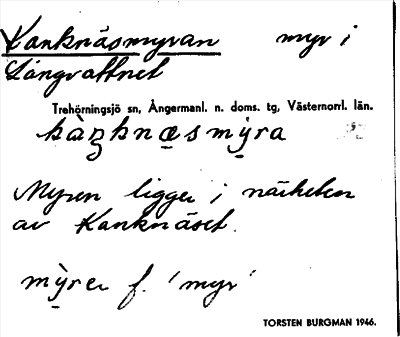 Kanknäsmyran myr i
Långvattnet
Trehörningsjö sn, Ångermanl. n. doms. tg, Västernorrl. län.
kàŋknæsmỳra
Myren ligger i närheten
av Kanknäset.
mỳren f. 'myr'
TORSTEN BURGMAN 1946.